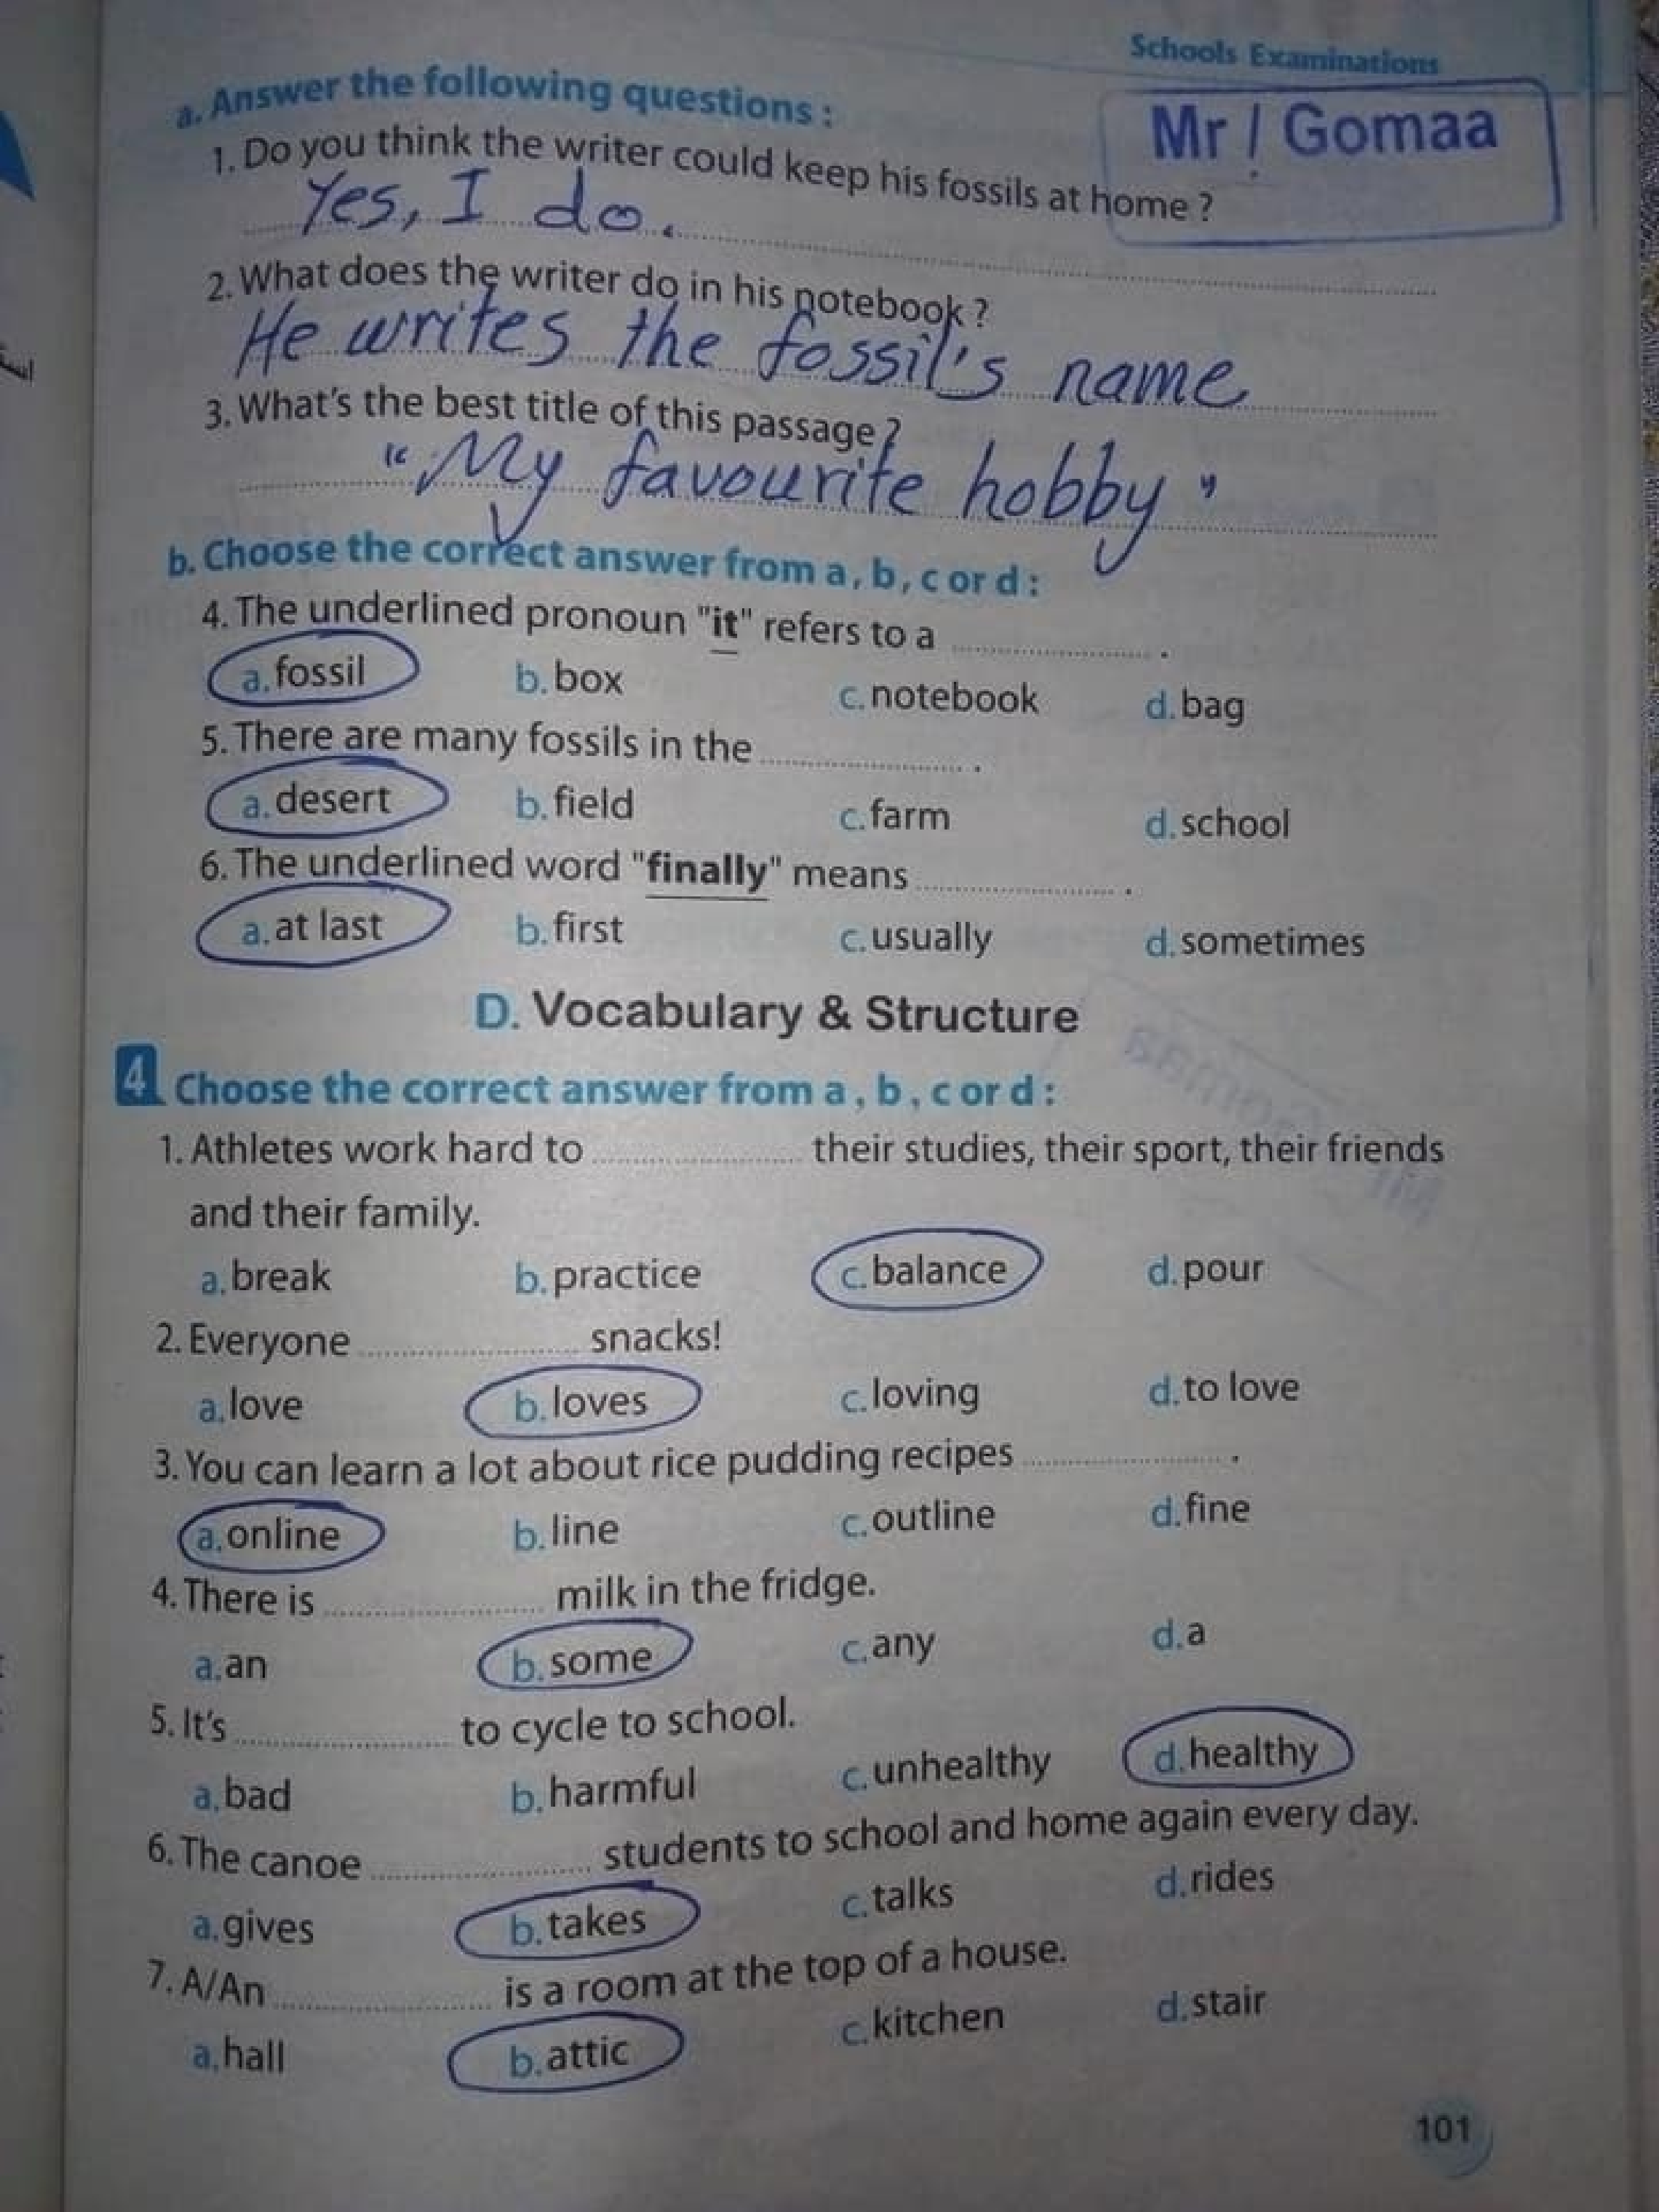 Schools Examinations
Mr / Gomaa
a. Answer the following questions :
1. Do you think the writer could keep his fossils at home ?
Yes, I do.
2. What does the writer do in his notebook ?
He writes the fossil's name
3. What's the best title of this passage ?
"My favourite hobby"
b. Choose the correct answer from a , b , c or d :
4. The underlined pronoun "it" refers to a .................... .
a. fossil b. box c. notebook d. bag
5. There are many fossils in the .................... .
a. desert b. field c. farm d. school
6. The underlined word "finally" means .................... .
a. at last b. first c. usually d. sometimes
D. Vocabulary & Structure
4 Choose the correct answer from a , b , c or d :
1. Athletes work hard to .................... their studies, their sport, their friends
and their family.
a. break b. practice c. balance d. pour
2. Everyone .................... snacks!
a. love b. loves c. loving d. to love
3. You can learn a lot about rice pudding recipes .................... .
a. online b. line c. outline d. fine
4. There is .................... milk in the fridge.
a. an b. some c. any d. a
5. It's .................... to cycle to school.
a. bad b. harmful c. unhealthy d. healthy
6. The canoe .................... students to school and home again every day.
a. gives b. takes c. talks d. rides
7. A/An .................... is a room at the top of a house.
a. hall b. attic c. kitchen d. stair
101